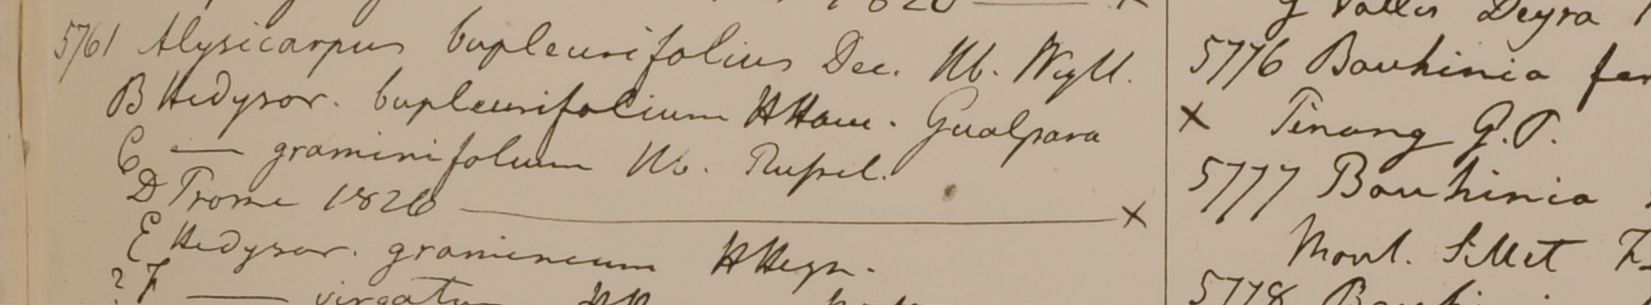 1820
5761 Alysicarpus bupleurifolius Dec. Hb. Wight.
B Hedysar. bupleurifolium HHam. Gualpara
C — graminifolium Hb. Russel.
D Prome 1826 — x
E Hedysar. gramineum HHeyn.
? F — virgatum
Vallis Deyra
5776 Bauhinia
x Pinang G.P.
5777 Bauhinia
Mont. Sillet
5778